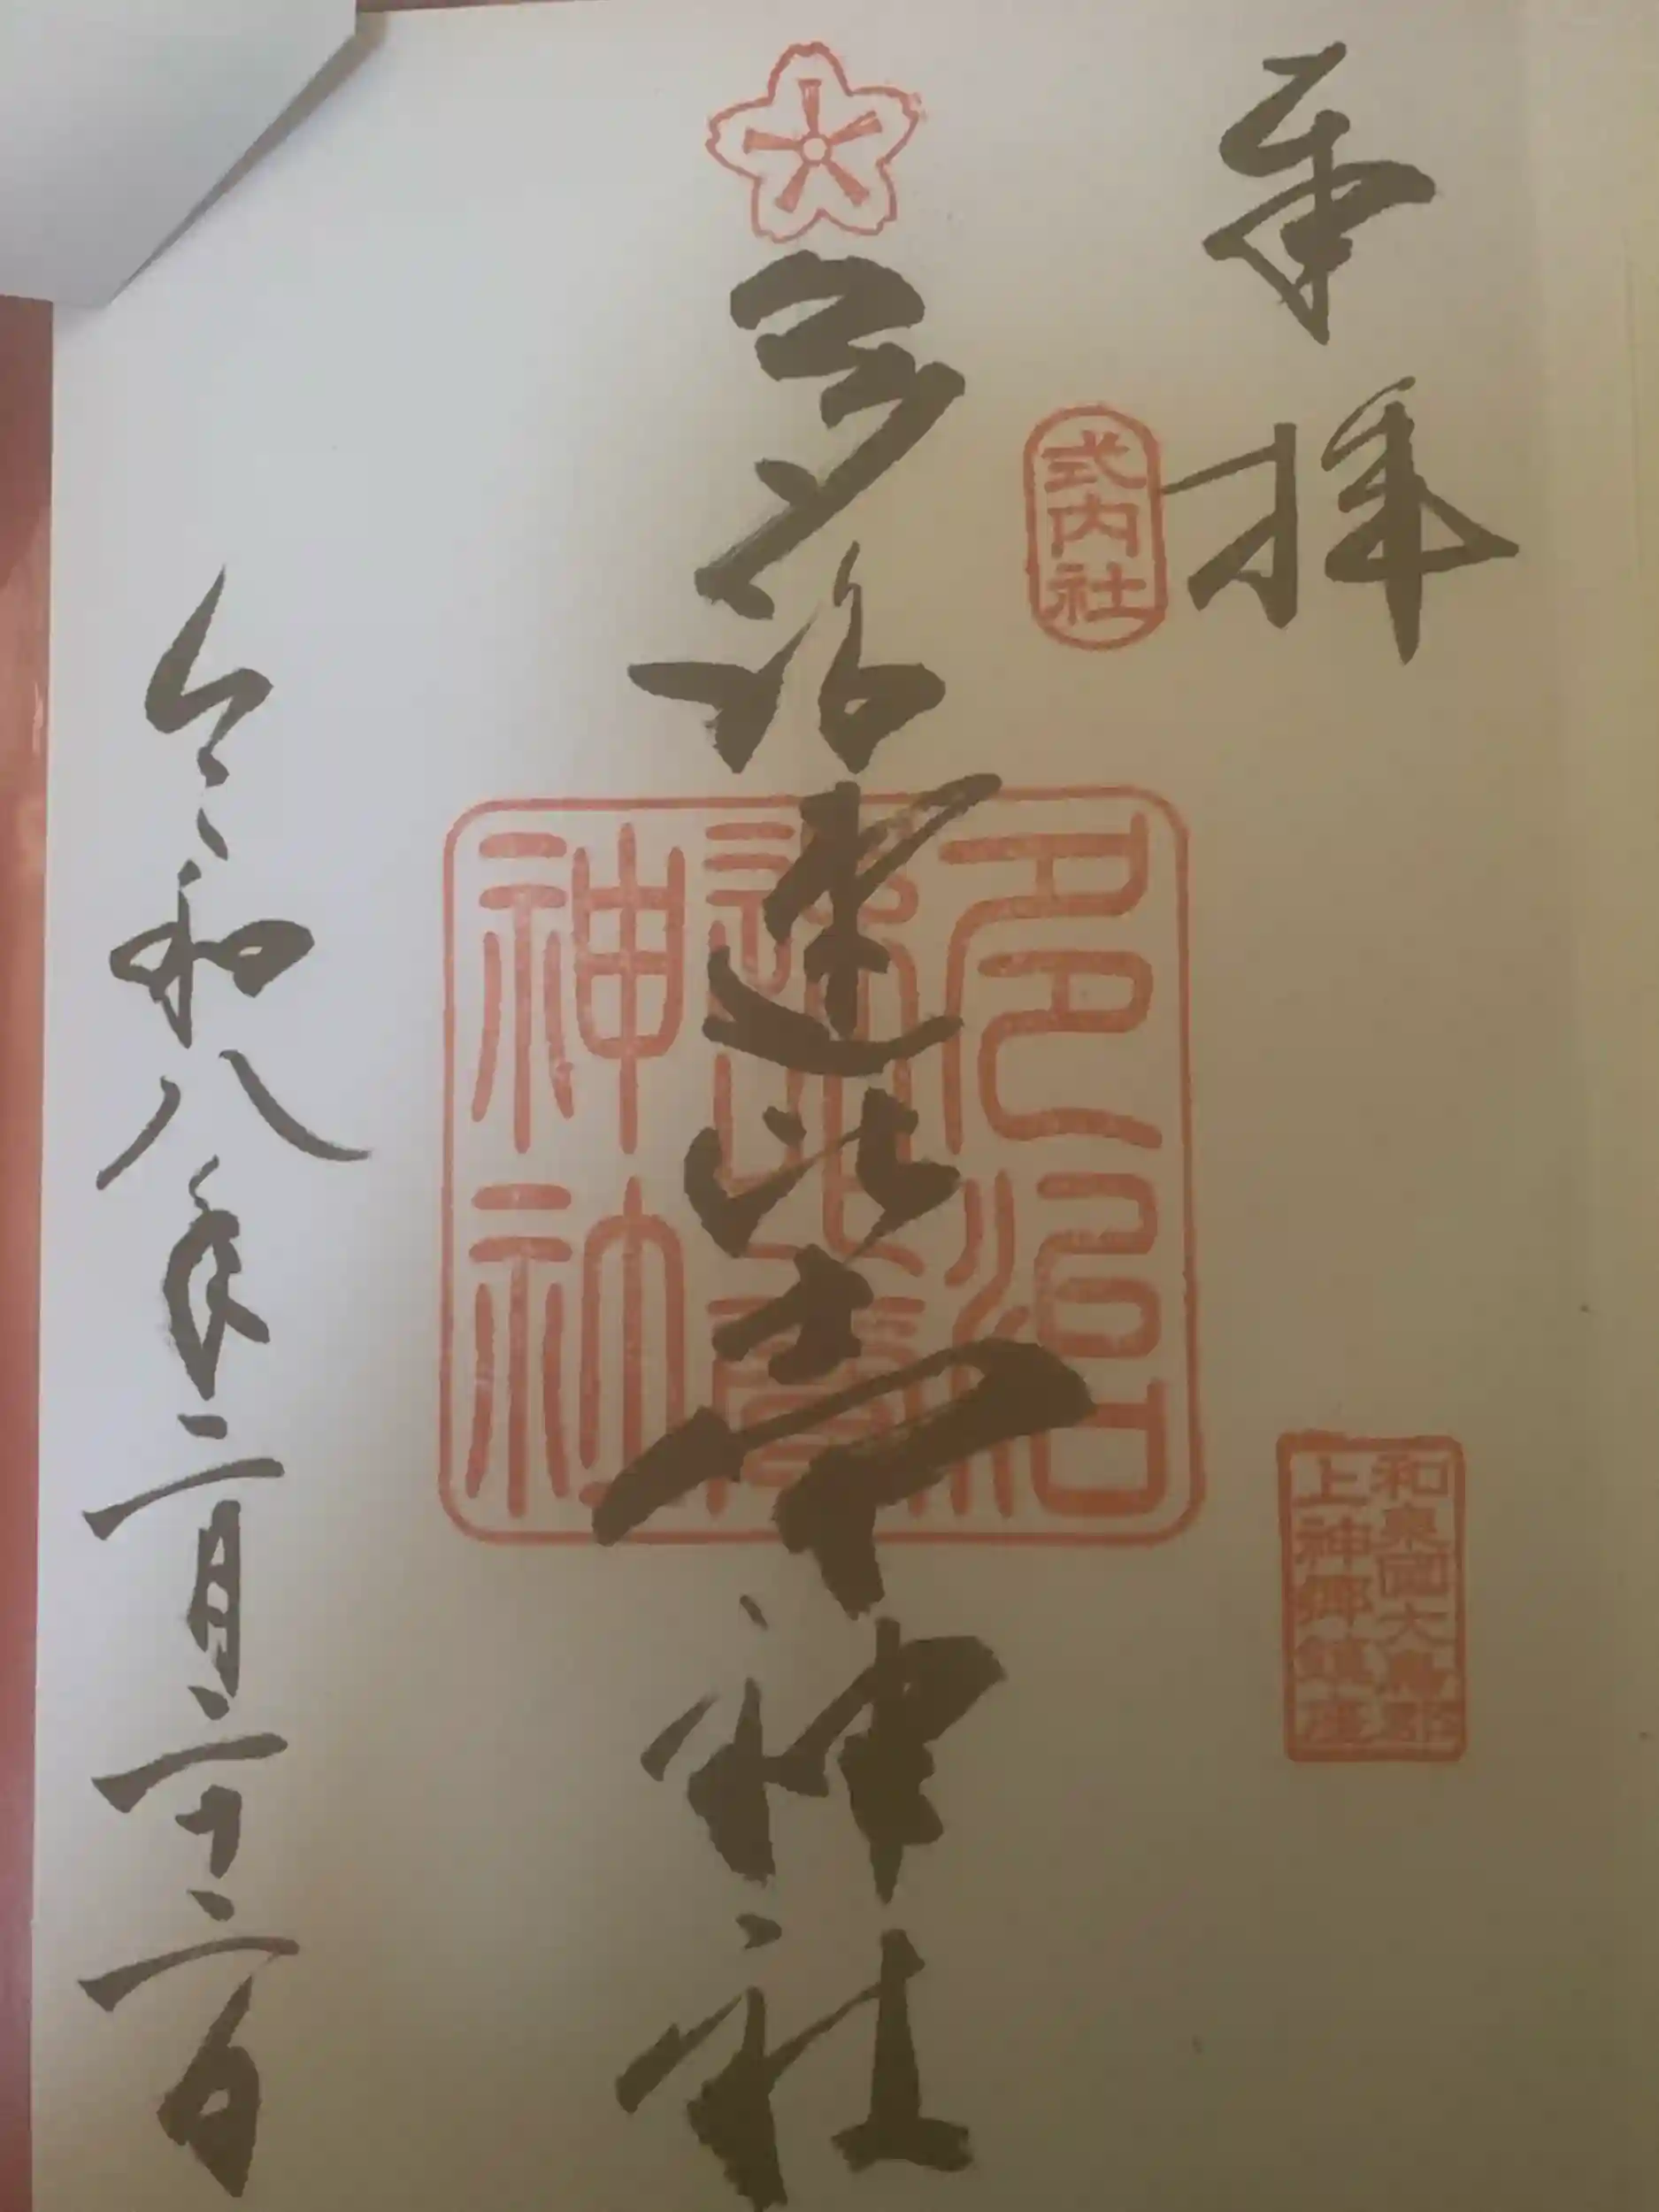 奉拝
式内社
和泉國大鳥郡
上神郷鎮座
多治速比売神社
多治
速比賣
神社
令和八年二月二十二日